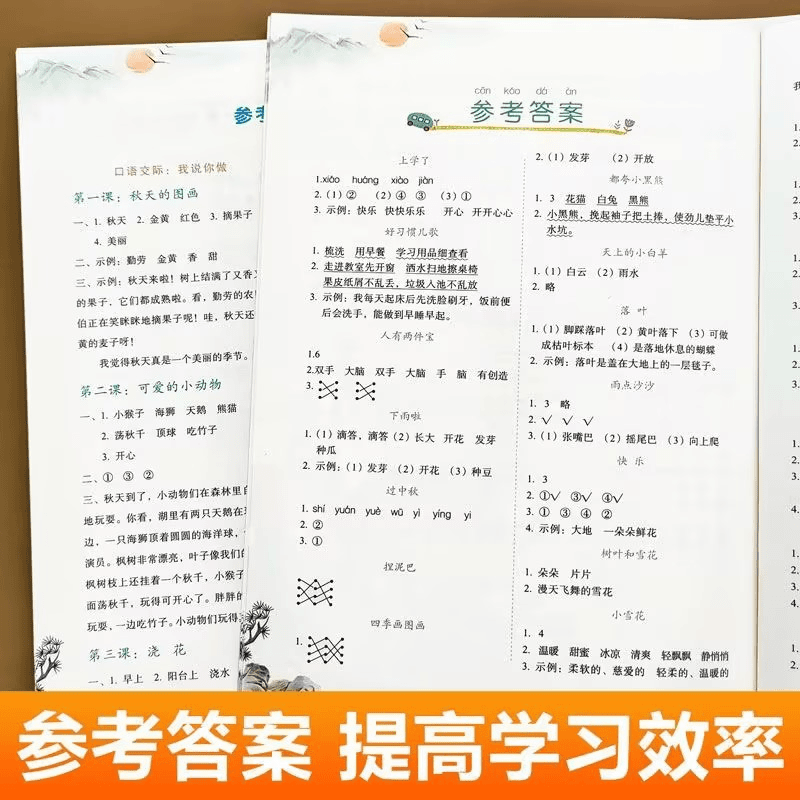 参考
口语交际：我说你做
第一课：秋天的图画
一、1. 秋天 2. 金黄 红色 3. 摘果子
4. 美丽
二、示例：勤劳 金黄 香 甜
三、示例：秋天来啦！树上结满了又香
的果子，它们都成熟啦。看，勤劳的农
伯正在笑眯眯地摘果子呢！哇，秋天还
黄的麦子呀！
我觉得秋天真是一个美丽的季节。
第二课：可爱的小动物
一、1. 小猴子 海狮 天鹅 熊猫
2. 荡秋千 顶球 吃竹子
3. 开心
二、① ③ ②
三、秋天到了，小动物们在森林里自
地玩耍。你看，湖里有两只天鹅在
边，一只海狮顶着圆圆的海洋球，
演员。枫树非常漂亮，叶子像我们的
枫树枝上还挂着一个秋千，小猴子
面荡秋千，玩得可开心了。胖胖的
玩耍、一边吃竹子。小动物们玩得
第三课：浇 花
一、1. 早上 2. 阳台上 浇水
cān kǎo dá àn
参考答案
上学了
1.xiǎo huáng xiào jiàn
2.（1）② （2）④ ③ （3）①
3. 示例：快乐 快快乐乐 开心 开开心心
好习惯儿歌
1. 梳洗 用早餐 学习用品细查看
2. 走进教室先开窗 洒水扫地擦桌椅
果皮纸屑不乱丢，垃圾入池不乱放
3. 示例：我每天起床后先洗脸刷牙，饭前便
后会洗手，能做到早睡早起。
人有两件宝
1.6
2.双手 大脑 双手 大脑 手 脑 有创造
3.
下雨啦
1.（1）滴答，滴答（2）长大 开花 发芽
种瓜
2. 示例：（1）发芽 （2）开花 （3）种豆
过中秋
1. shí yuán yuè wū yì yíng yi
2. ②
3. ①
捏泥巴
四季画图画
1.
2.（1）发芽 （2）开放
都夸小黑熊
1. 3 花猫 白兔 黑熊
2. 小黑熊，挽起袖子把土捧，使劲儿垫平小
水坑。
天上的小白羊
1.（1）白云（2）雨水
2. 略
落 叶
1.（1）脚踩落叶 （2）黄叶落下 （3）可做
成枯叶标本 （4）是落地休息的蝴蝶
2. 示例：落叶是盖在大地上的一层毯子。
雨点沙沙
1. 3 略
2. √ √ √
3.（1）张嘴巴 （2）摇尾巴 （3）向上爬
快 乐
1. 3
2. ①√ ③√ ④√
3. ① ③ ④ ②
4. 示例：大地 一朵朵鲜花
树叶和雪花
1. 朵朵 片片
2. 漫天飞舞的雪花
小雪花
1. 4
2. 温暖 甜蜜 冰凉 清爽 轻飘飘 静悄悄
3. 示例：柔软的、慈爱的 轻柔的、温暖的
参考答案 提高学习效率